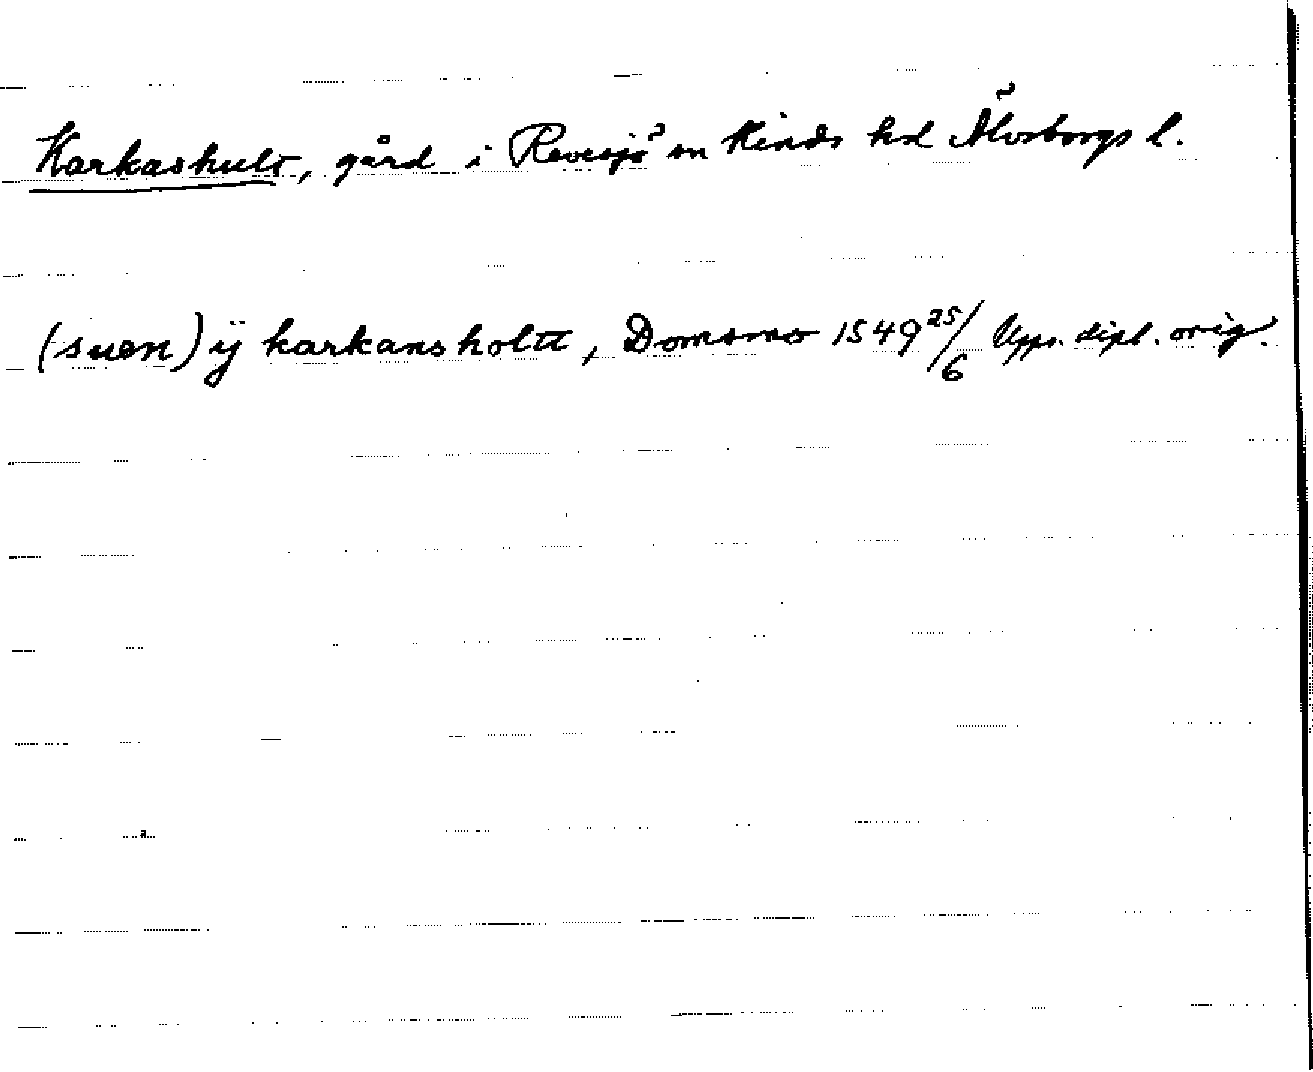 Karkashult, gård i Revesjö sn Kinds hd Älvsborgs l.
(suen) ÿ karkansholtt, Domsmo 1549 25/6 Upps. dipl. orig.